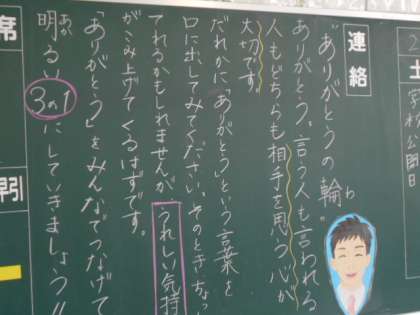 土
学校公開日
連絡
"ありがとうの輪"
わ
ありがとう。言う人も言われる
人もどちらも相手を思う心が
大切です。
だれかに「ありがとう」という言葉を
口に出してみてください。そのときちょっ
てれるかもしれませんが、うれしい気持
がこみ上げてくるはずです。
「ありがとう」をみんなでつなげて
明るい3の1にしていきましょう!!
あか
席
引